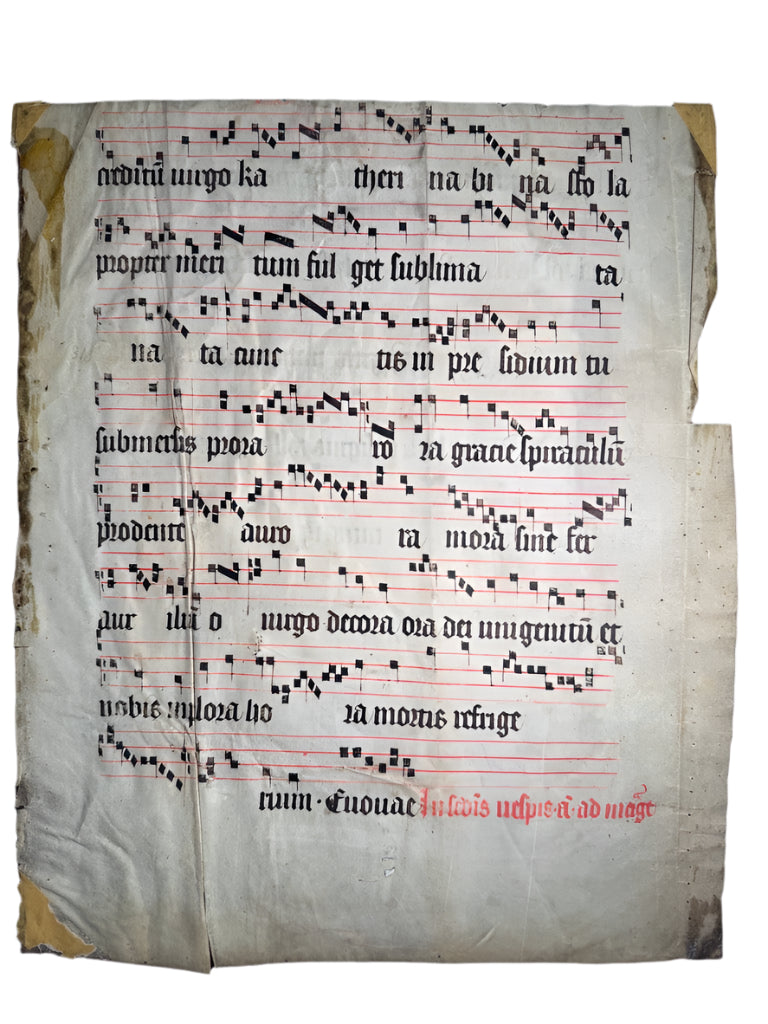 creditū uirgo ka theri na bi na sto la
propter meri tum ful get sublima ta
na ta cunc tis in pre sidium tu
submersis prora ro ra gracie spiraculū
prodente auro ra mora sine fer
aux iliū o uirgo decora ora dei unigenitū et
nobis inplora ho ra mortis refrige
rium · Euouae In scd̄is uesp̄is · a᷃ · ad mag̃t